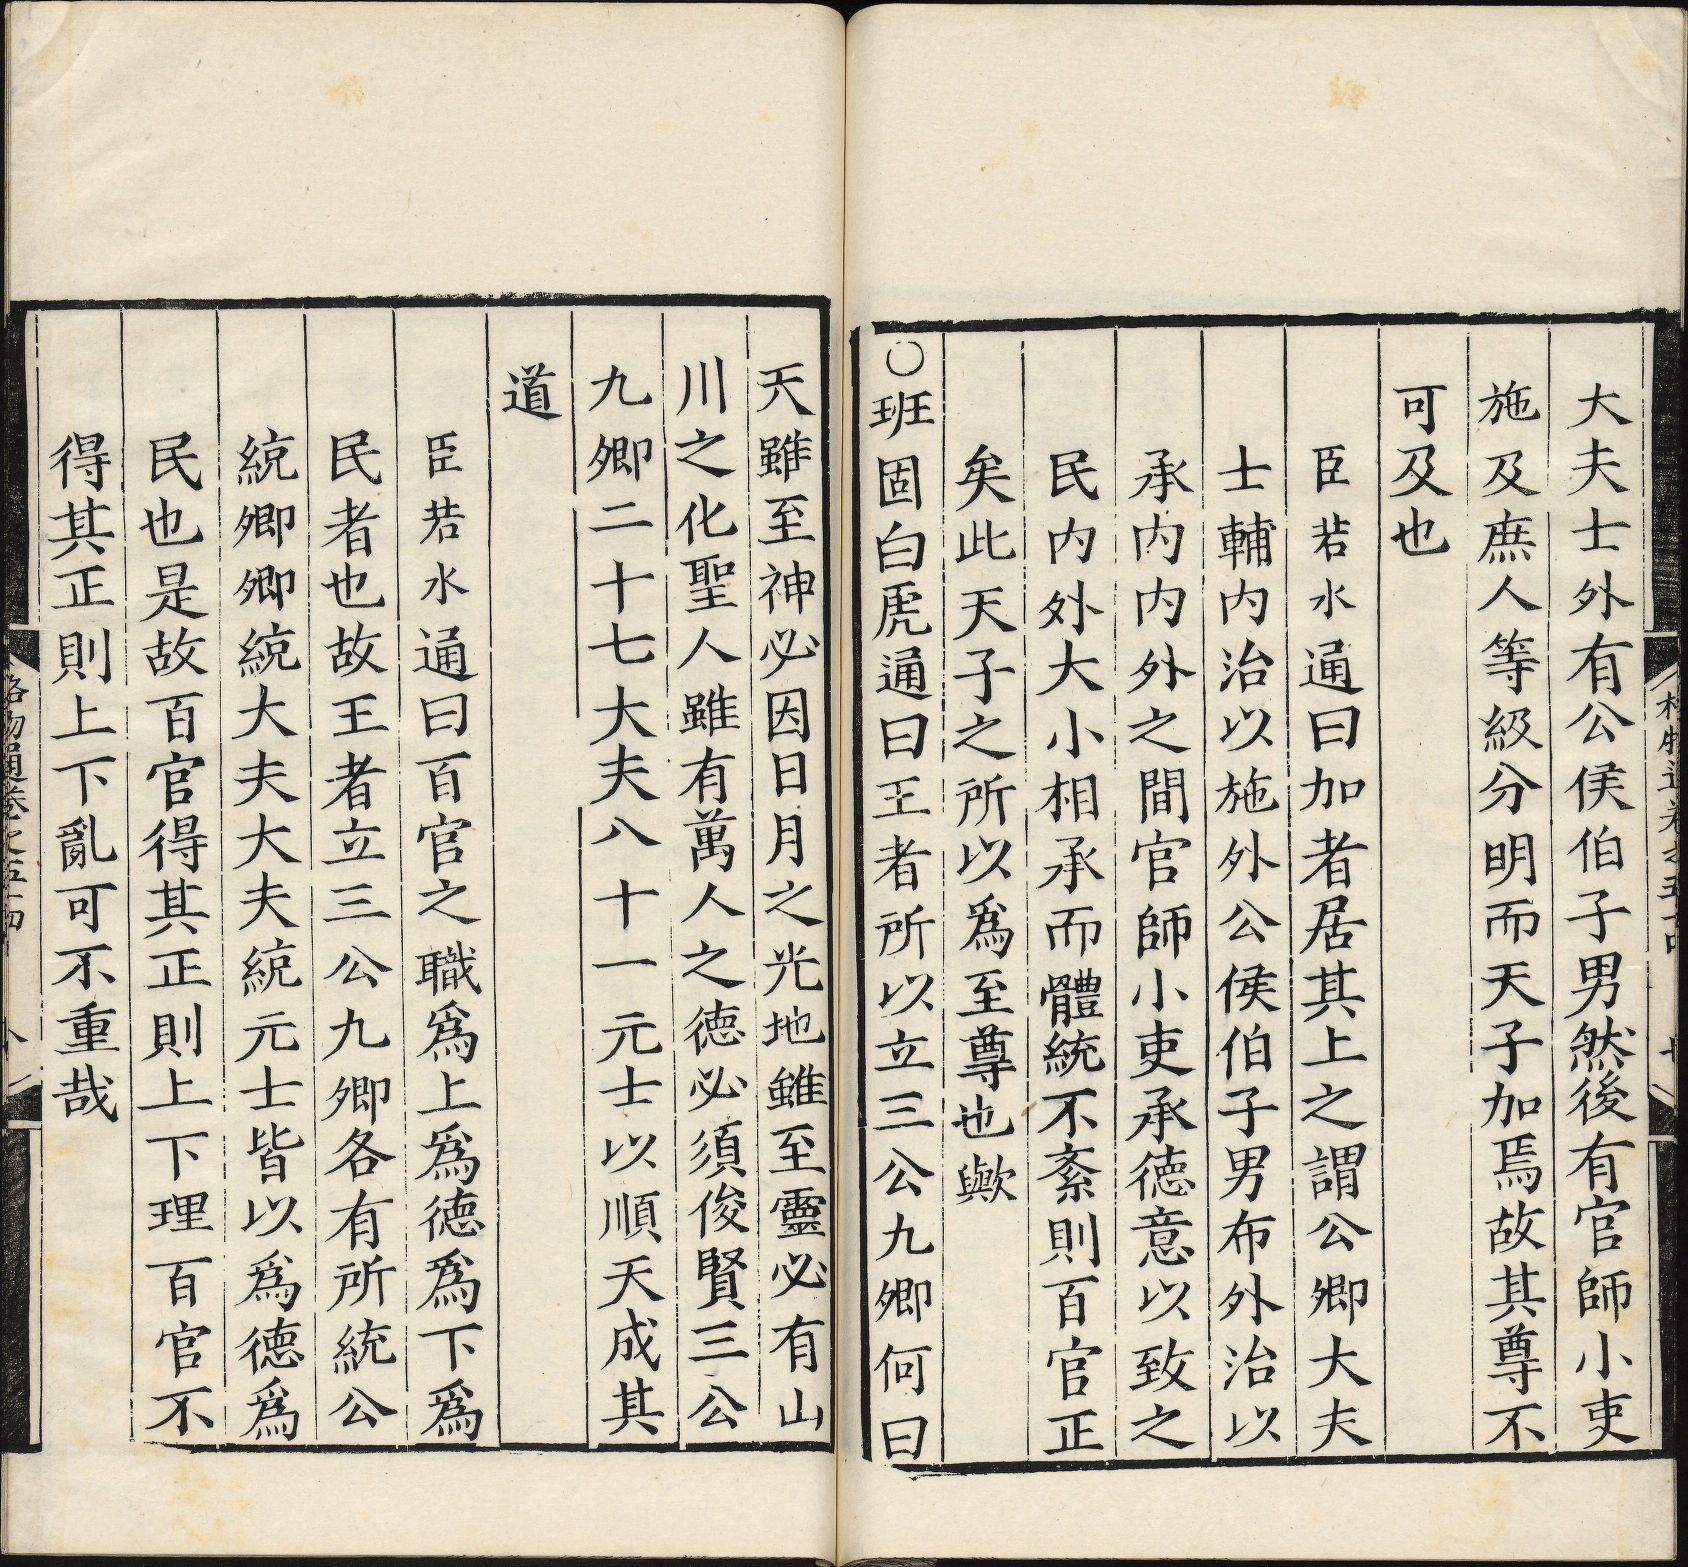 大夫士外有公侯伯子男然後有官師小吏
施及庶人等級分明而天子加焉故其尊不
可及也
臣若水通曰加者居其上之謂公卿大夫
士輔內治以施外公侯伯子男布外治以
承內內外之間官師小吏承德意以致之
民內外大小相承而體統不紊則百官正
矣此天子之所以爲至尊也歟
○班固白虎通曰王者所以立三公九卿何曰
天雖至神必因日月之光地雖至靈必有山
川之化聖人雖有萬人之德必須俊賢三公
九卿二十七大夫八十一元士以順天成其
道
臣若水通曰百官之職爲上爲德爲下爲
民者也故王者立三公九卿各有所統公
統卿卿統大夫大夫統元士皆以爲德爲
民也是故百官得其正則上下理百官不
得其正則上下亂可不重哉
格物通卷之五十四